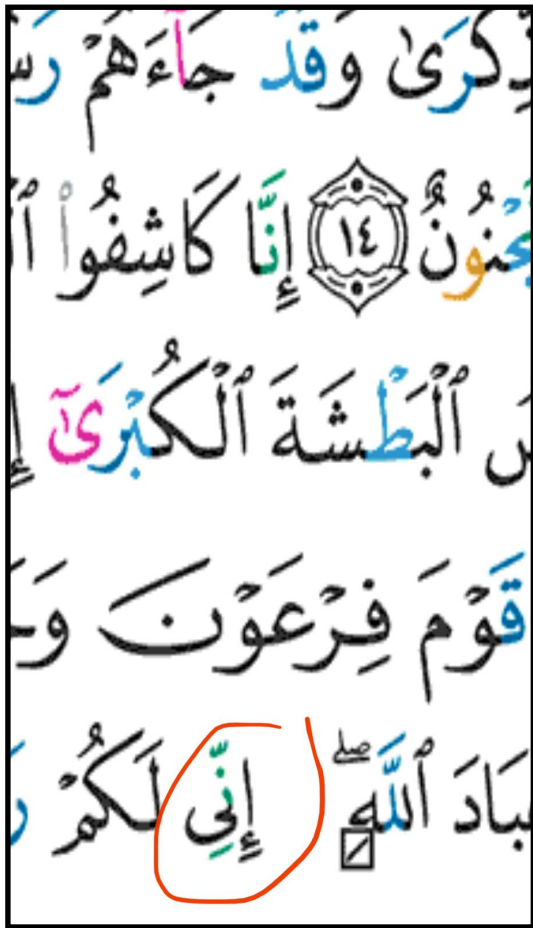 ذِّكْرَىٰ وَقَدْ جَآءَهُمْ رَس
جْنُونٌ ١٤ إِنَّا كَاشِفُوا۟ ٱل
ٱلْبَطْشَةَ ٱلْكُبْرَىٰٓ إِ
قَوْمَ فِرْعَوْنَ وَجَ
بَادَ ٱللَّهِ ۖ إِنِّى لَكُمْ رَ